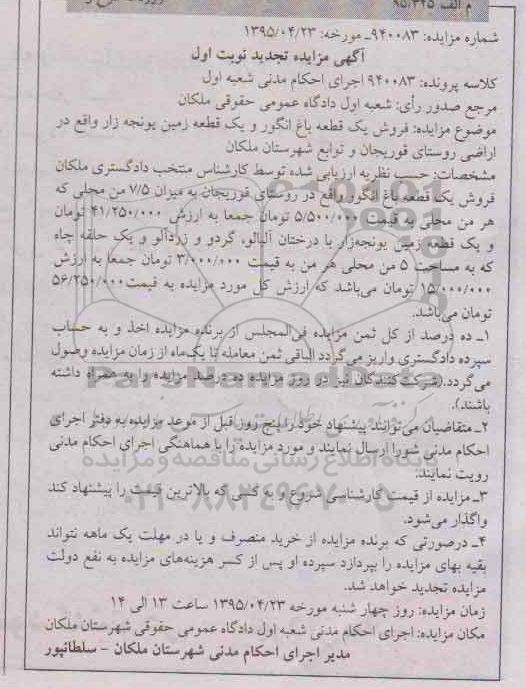 م الف ۹۵/۳۴۵
شماره مزایده: ۹۴۰۰۸۳ـ مورخه: ۱۳۹۵/۰۴/۲۳
آگهی مزایده تجدید نوبت اول
کلاسه پرونده: ۹۴۰۰۸۳ اجرای احکام مدنی شعبه اول
مرجع صدور رأی: شعبه اول دادگاه عمومی حقوقی ملکان
موضوع مزایده: فروش یک قطعه باغ انگور و یک قطعه زمین یونجه زار واقع در
اراضی روستای قوریجان و توابع شهرستان ملکان
مشخصات: حسب نظریه ارزیابی شده توسط کارشناس منتخب دادگستری ملکان
فروش یک قطعه باغ انگور واقع در روستای قوریجان به میزان ۷/۵ من محلی که
هر من محلی به قیمت ۵/۵۰۰/۰۰۰ تومان جمعا به ارزش ۴۱/۲۵۰/۰۰۰ تومان
و یک قطعه زمین یونجه‌زار با درختان آلبالو، گردو و زردآلو و یک حلقه چاه
که به مساحت ۵ من محلی هر من به قیمت ۳/۰۰۰/۰۰۰ تومان جمعا به ارزش
۱۵/۰۰۰/۰۰۰ تومان می‌باشد که ارزش کل مورد مزایده به قیمت۵۶/۲۵۰/۰۰۰
تومان می‌باشد.
۱ـ ده درصد از کل ثمن مزایده فی‌المجلس از برنده مزایده اخذ و به حساب
سپرده دادگستری واریز می‌گردد الباقی ثمن معامله تا یک‌ماه از زمان مزایده وصول
می‌گردد.(شرکت‌کنندگان نیز در روز مزایده ده درصد مزایده را به همراه داشته
باشند).
۲ـ متقاضیان می‌توانند پیشنهاد خود را پنج روز قبل از موعد مزایده به دفتر اجرای
احکام مدنی شورا ارسال نمایند و مورد مزایده را با هماهنگی اجرای احکام مدنی
رویت نمایند.
۳ـ مزایده از قیمت کارشناسی شروع و به کسی که بالاترین قیمت را پیشنهاد کند
واگذار می‌شود.
۴ـ درصورتی که برنده مزایده از خرید منصرف و یا در مهلت یک ماهه نتواند
بقیه بهای مزایده را بپردازد سپرده او پس از کسر هزینه‌های مزایده به نفع دولت
مزایده تجدید خواهد شد.
زمان مزایده: روز چهار شنبه مورخه ۱۳۹۵/۰۴/۲۳ ساعت ۱۳ الی ۱۴
مکان مزایده: اجرای احکام مدنی شعبه اول دادگاه عمومی حقوقی شهرستان ملکان
مدیر اجرای احکام مدنی شهرستان ملکان - سلطانپور
ParsNamadData
پایگاه اطلاع رسانی مناقصه و مزایده
۰۲۱-۸۸۳۴۹۶۷۰-۵